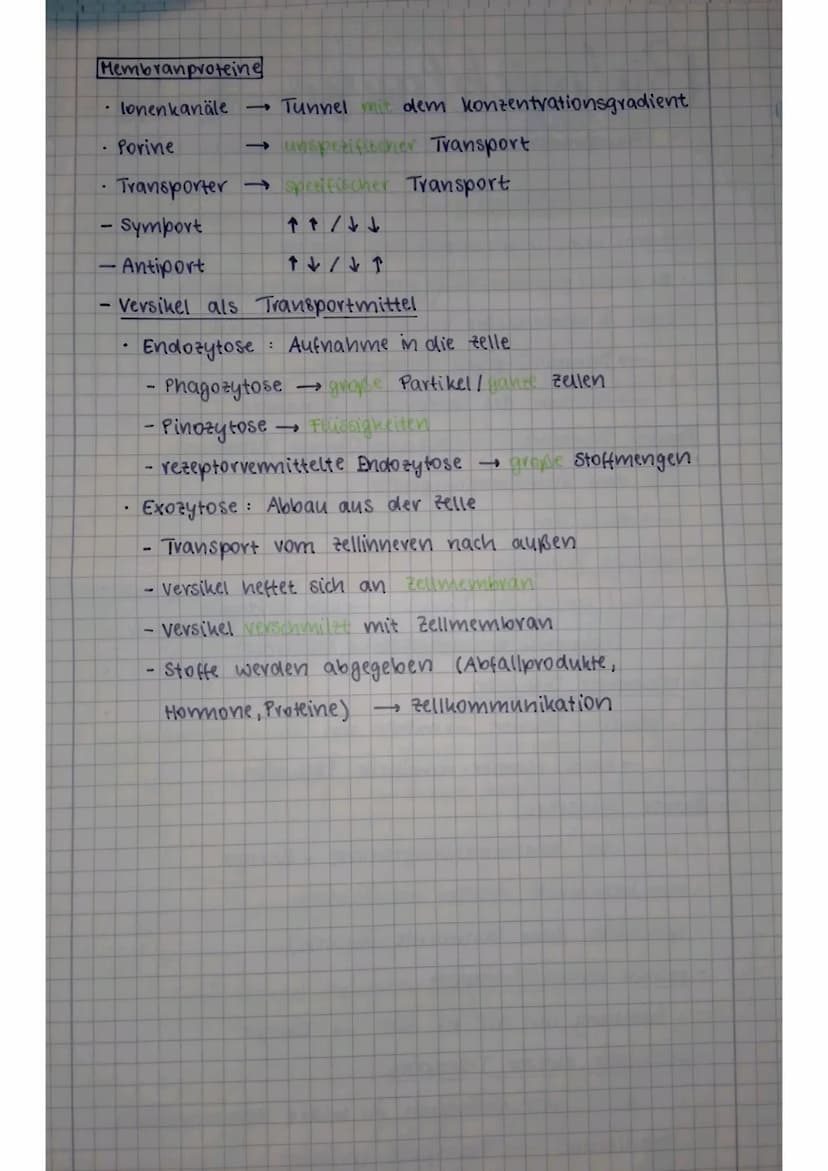 Membranproteine
· Ionenkanäle → Tunnel mit dem Konzentrationsgradient
· Porine → unspezifischer Transport
· Transporter → spezifischer Transport
- Symport ↑ ↑ / ↓ ↓
- Antiport ↑ ↓ / ↓ ↑
- Versikel als Transportmittel
· Endozytose : Aufnahme in die Zelle
- Phagozytose → große Partikel / ganze Zellen
- Pinozytose → Flüssigkeiten
- rezeptorvermittelte Endozytose → große Stoffmengen
· Exozytose : Abbau aus der Zelle
- Transport vom Zellinneren nach außen
- Versikel heftet sich an Zellmembran
- Versikel verschmilzt mit Zellmembran
- Stoffe werden abgegeben (Abfallprodukte,
Hormone, Proteine) → Zellkommunikation